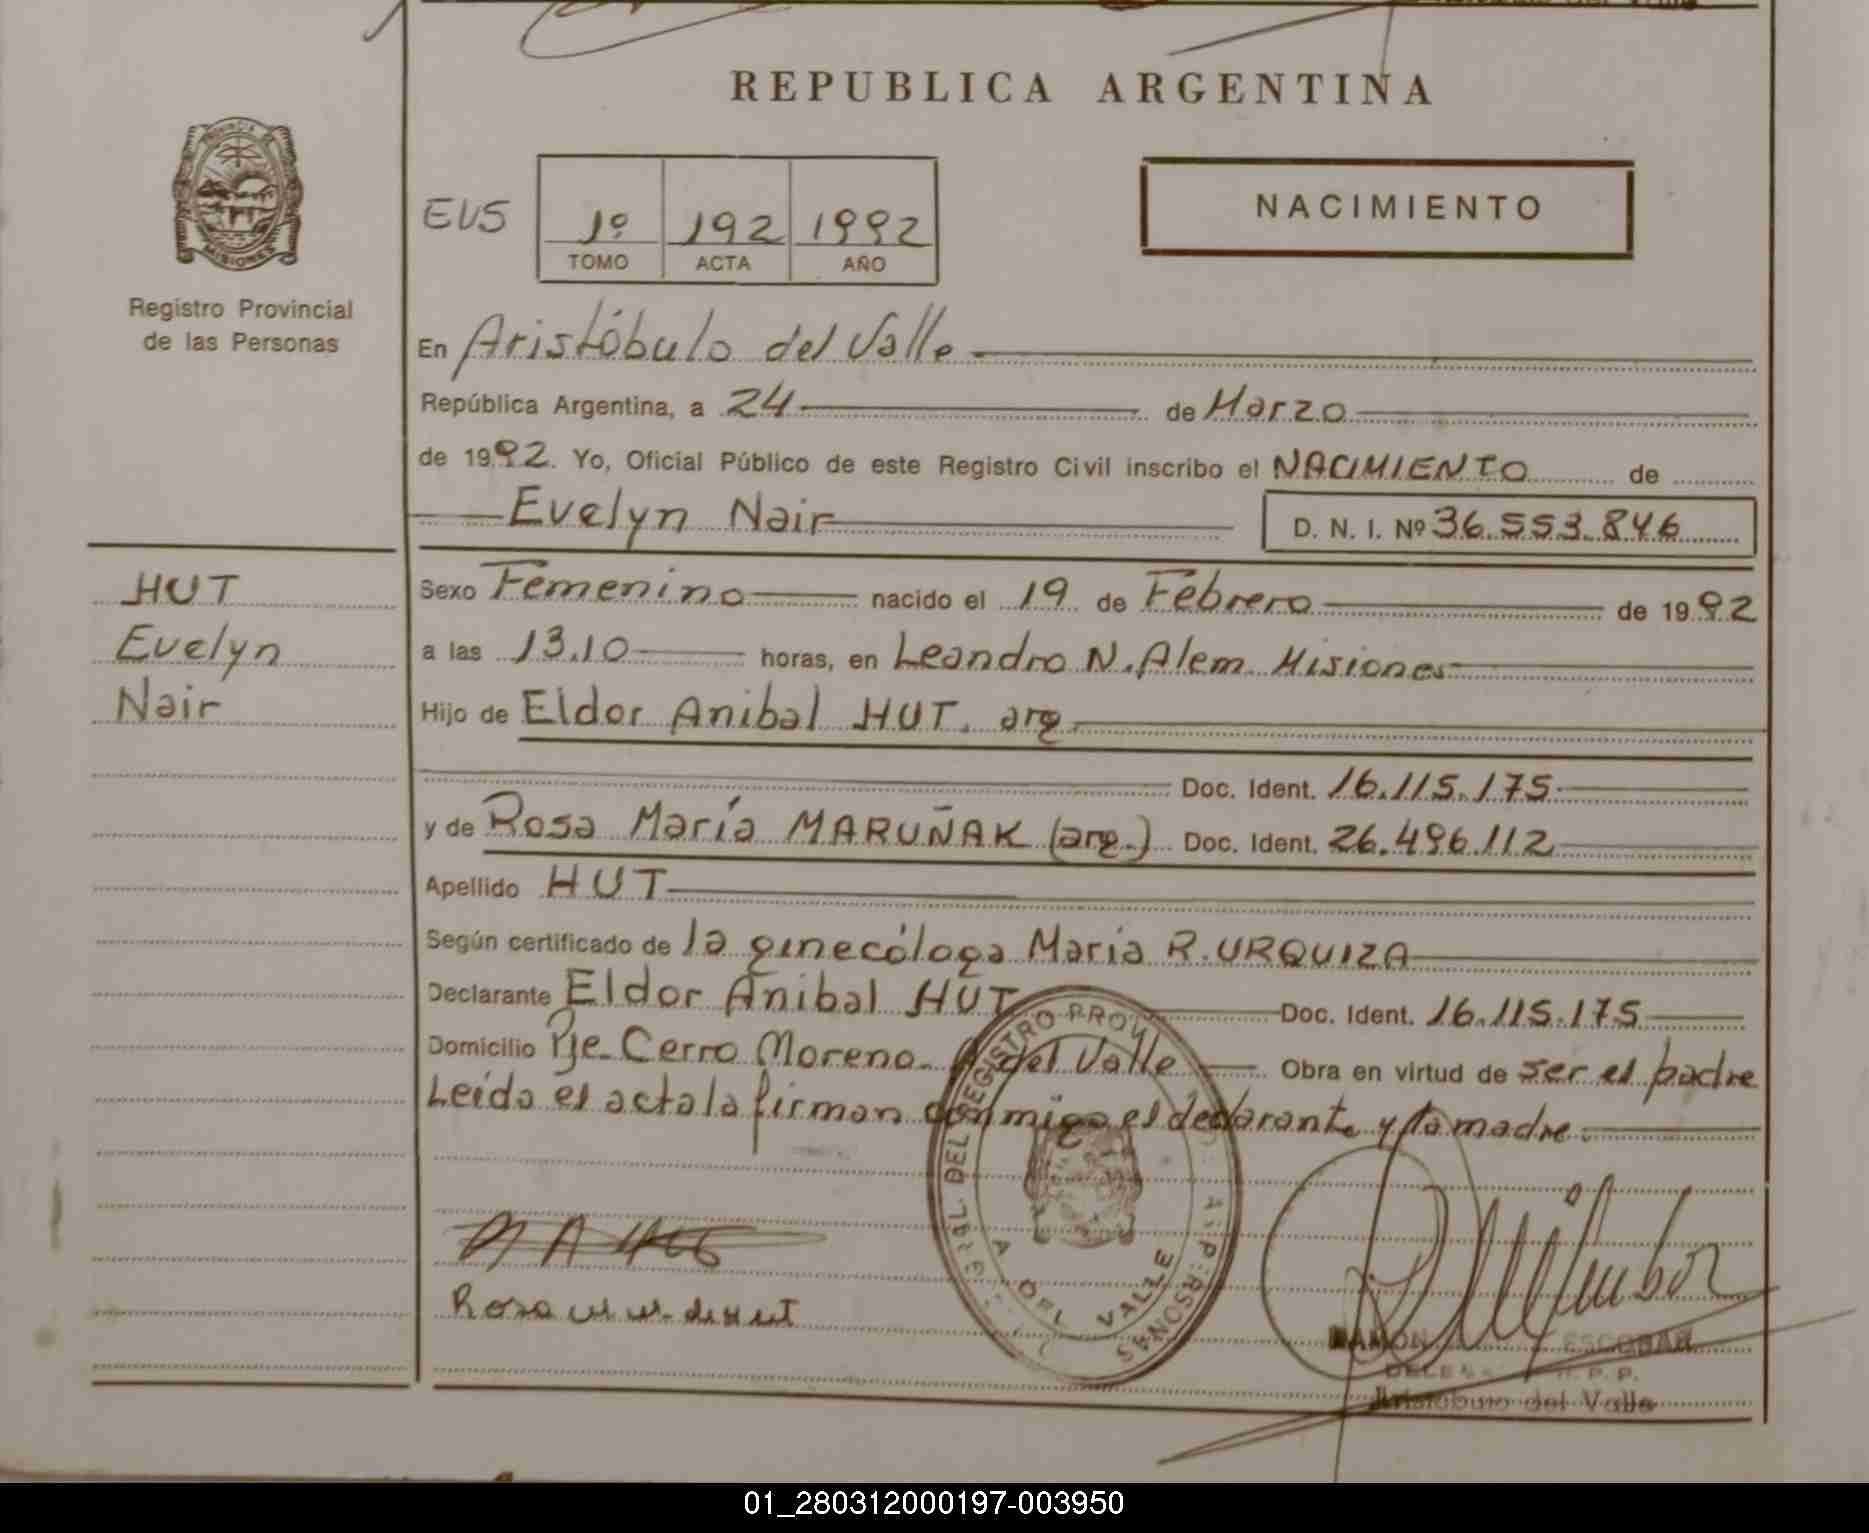 REPUBLICA ARGENTINA
PROVINCIA
MISIONES
Registro Provincial
de las Personas
EVS
1º 192 1992
TOMO ACTA AÑO
NACIMIENTO
En Aristóbulo del Valle
República Argentina, a 24 de Marzo
de 1992. Yo, Oficial Público de este Registro Civil inscribo el NACIMIENTO de
Evelyn Nair D. N. I. Nº 36.553.846
HUT
Evelyn
Nair
Sexo Femenino nacido el 19 de Febrero de 1992
a las 13.10 horas, en Leandro N. Alem. Misiones
Hijo de Eldor Anibal HUT. arg
Doc. Ident. 16.115.175
y de Rosa María MARUÑAK (arg.) Doc. Ident. 26.496.112
Apellido HUT
Según certificado de la ginecóloga Maria R. URQUIZA
Declarante Eldor Anibal HUT Doc. Ident. 16.115.175
Domicilio Pje. Cerro Moreno. A del Valle Obra en virtud de ser el padre
Leída el acta la firman conmigo el declarante y la madre.
DEL REGISTRO PROV.
A DEL VALLE
Rosa
RAMON ESCOBAR
Aristobulo del Valle
01_280312000197-003950